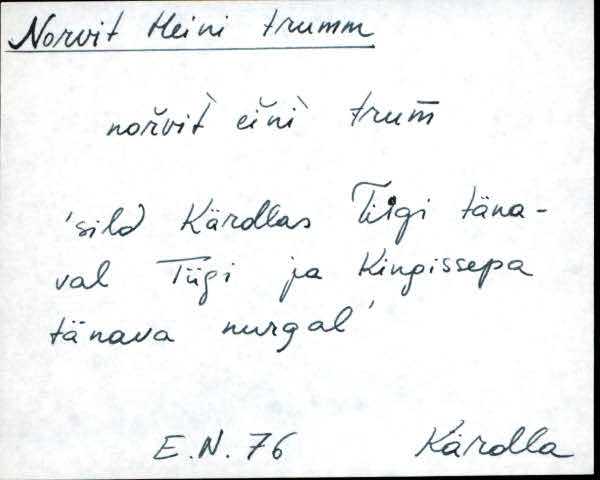 Norvit Heini trumm
nořvit̀ eǐnì trum̄
'sild Kärdlas Tiigi täna-
val Tiigi ja Kingissepa
tänava nurgal'
E.N. 76 Kärdla